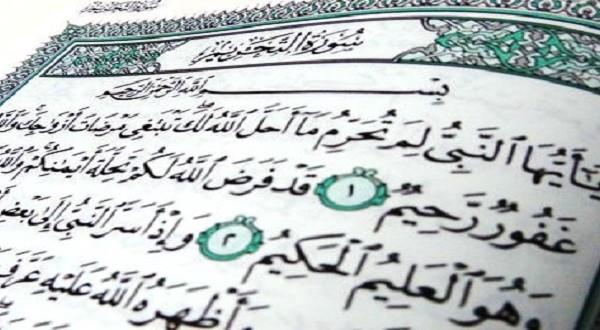 سُورَةُ التَّحْرِيمِ
بِسْمِ اللَّهِ الرَّحْمَٰنِ الرَّحِيمِ
يَٰٓأَيُّهَا ٱلنَّبِيُّ لِمَ تُحَرِّمُ مَآ أَحَلَّ ٱللَّهُ لَكَ تَبْتَغِي مَرْضَاتَ أَزْوَٰجِكَ
غَفُورٌ رَّحِيمٌ ١ قَدْ فَرَضَ ٱللَّهُ لَكُمْ تَحِلَّةَ أَيْمَٰنِكُمْ وَٱللَّهُ
وَهُوَ ٱلْعَلِيمُ ٱلْحَكِيمُ ٢ وَإِذْ أَسَرَّ ٱلنَّبِيُّ إِلَىٰ بَعْضِ
وَأَظْهَرَهُ ٱللَّهُ عَلَيْهِ عَرَّفَ